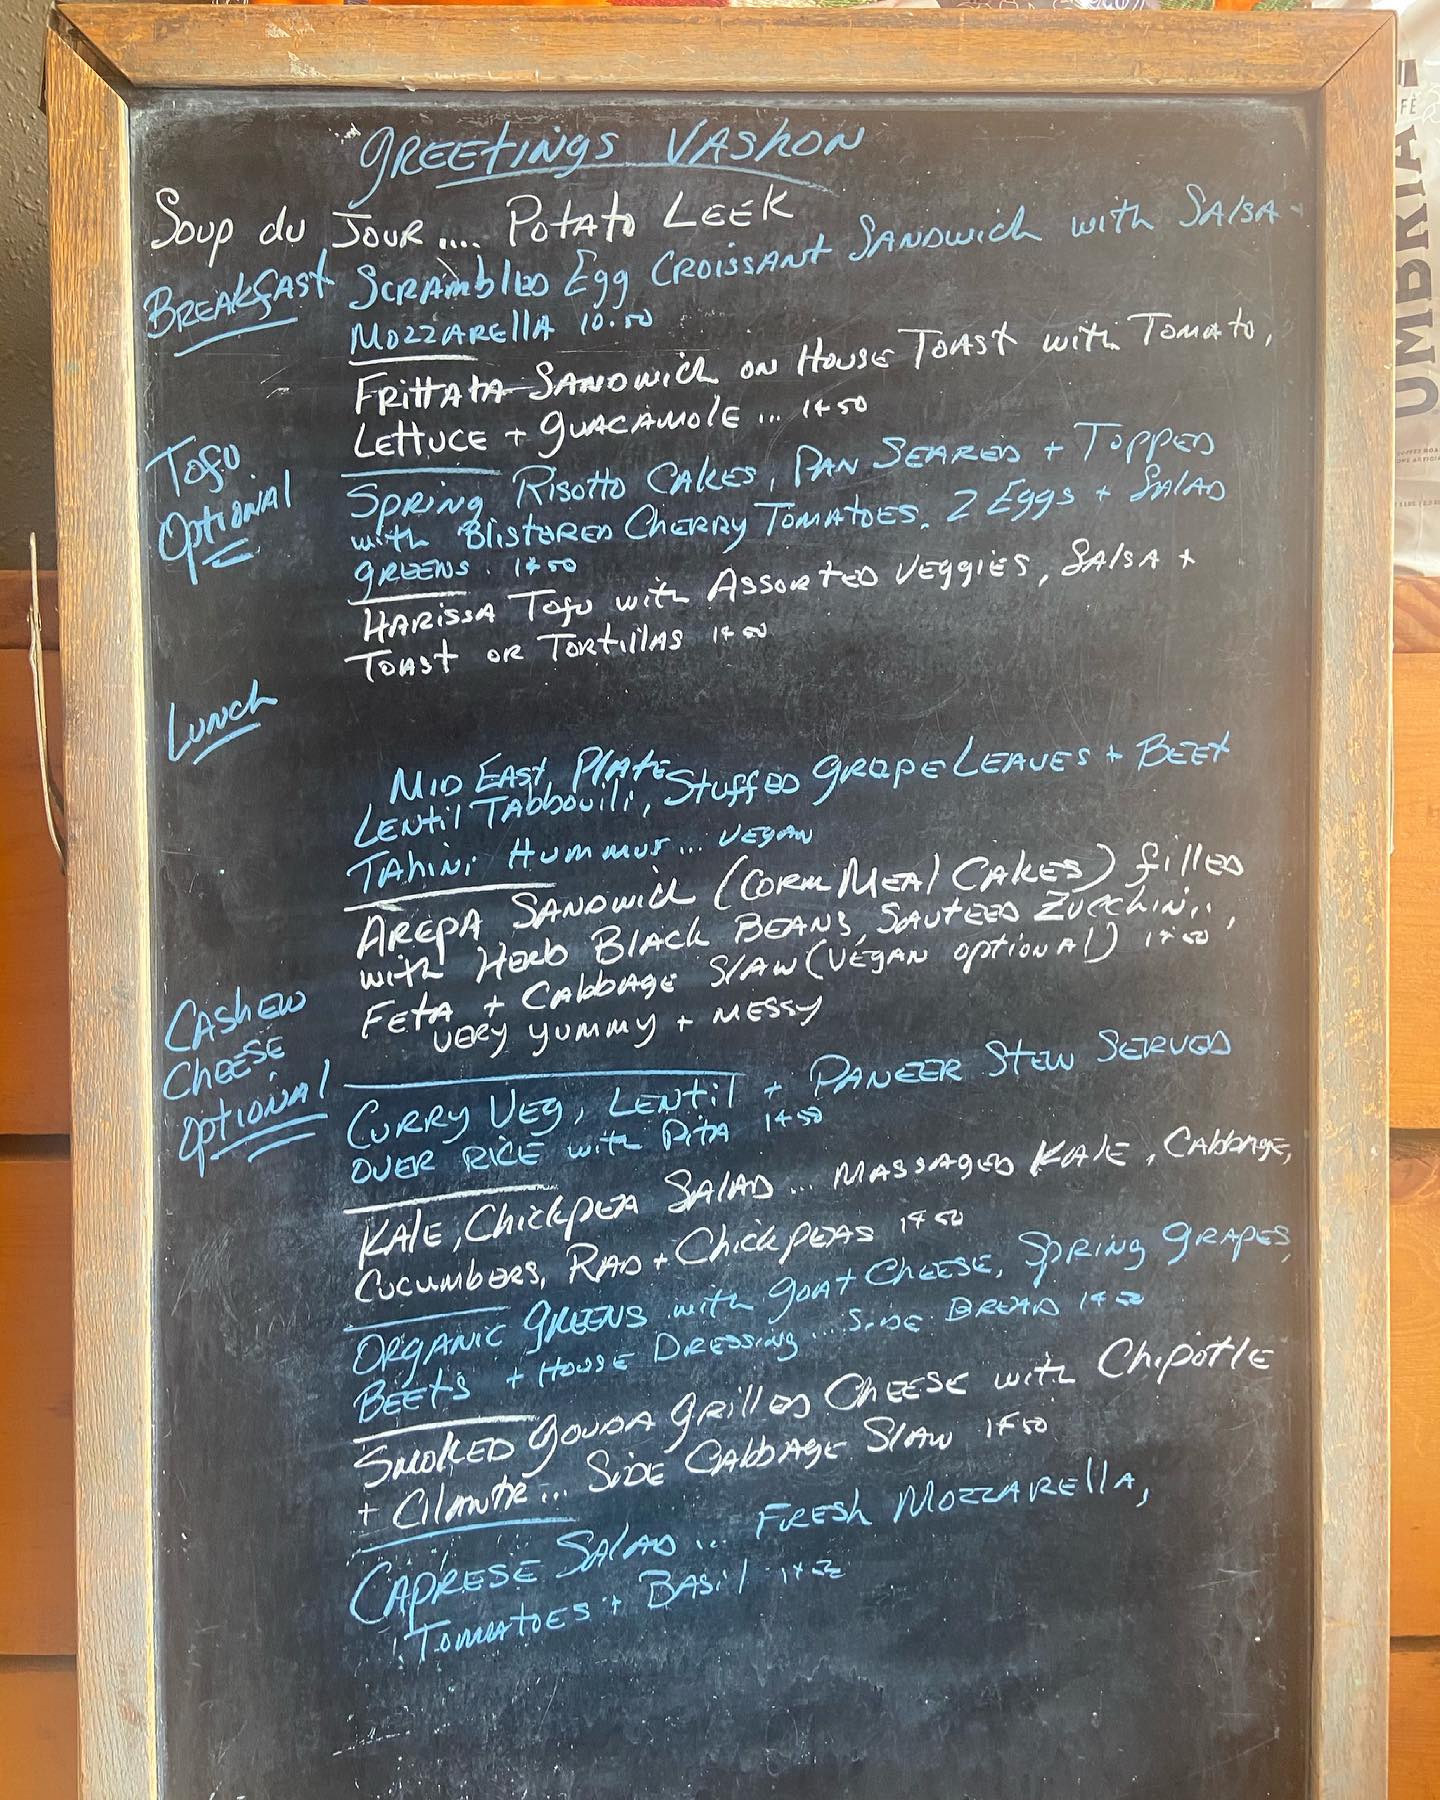 GREETINGS VASHON
Soup du Jour.... Potato Leek
Breakfast Scrambled Egg Croissant Sandwich with Salsa +
Mozzarella 10.50
Frittata Sandwich on House Toast with Tomato,
Lettuce + Guacamole ... 14.50
Tofu
Optional
Spring Risotto Cakes, Pan Seared + Topped
with Blistered Cherry Tomatoes, 2 Eggs + Salad
Greens. 14.50
Harissa Tofu with Assorted Veggies, Salsa +
Toast or Tortillas 14.50
Lunch
Mid East Plate
Lentil Tabbouili, Stuffed Grape Leaves + Beet
Tahini Hummus... Vegan
Arepa Sandwich (Corn Meal Cakes) filled
with Herb Black Beans, Sauteed Zucchini,
Feta + Cabbage Slaw (Vegan optional) 14.50
Very yummy + messy
Cashew
Cheese
Optional
Curry Veg, Lentil + Paneer Stew Served
over Rice with Pita 14.50
Kale, Chickpea Salad ... Massaged Kale, Cabbage,
Cucumbers, Rad + Chickpeas 14.50
Organic Greens with Goat Cheese, Spring Grapes,
Beets + House Dressing ... Side Bread 14.50
Smoked Gouda Grilled Cheese with Chipotle
+ Cilantr... Side Cabbage Slaw 14.50
Caprese Salad ... Fresh Mozzarella,
Tomatoes + Basil
UMBRIA